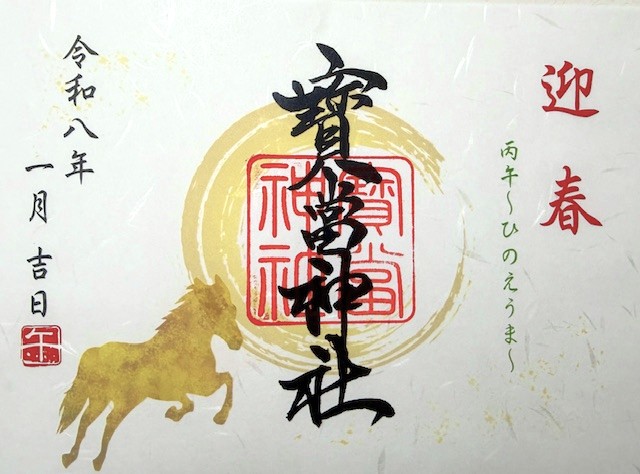 迎春
丙午〜ひのえうま〜
寶當神社
寶當
神社
令和八年
一月吉日
午